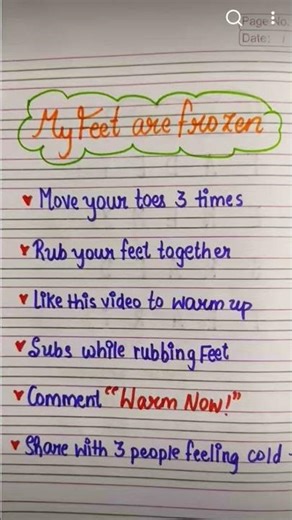 Page No.
Date: /
My Feet are frozen
♥ Move your toes 3 times
♥ Rub your feet together
♥ Like this video to warm up
♥ Subs while rubbing Feet
♥ Comment "Warm Now!"
♥ Share with 3 people feeling cold -